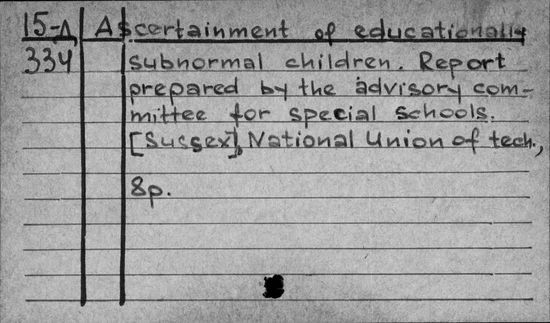 15-A Ascertainment of educationally
334 subnormal children. Report
prepared by the advisory com-
mittee for special schools.
[Sussex], National Union of tech.,
8p.